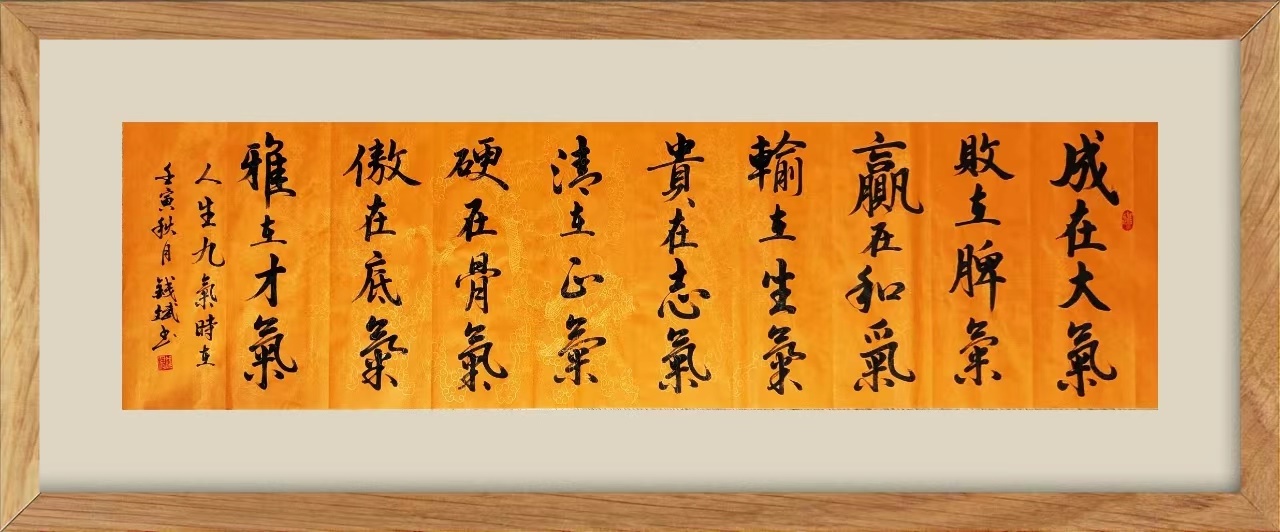 成在大氣
敗在脾氣
贏在和氣
輸在生氣
貴在志氣
清在正氣
硬在骨氣
傲在底氣
雅在才氣
人生九氣時在
壬寅秋月錢斌书